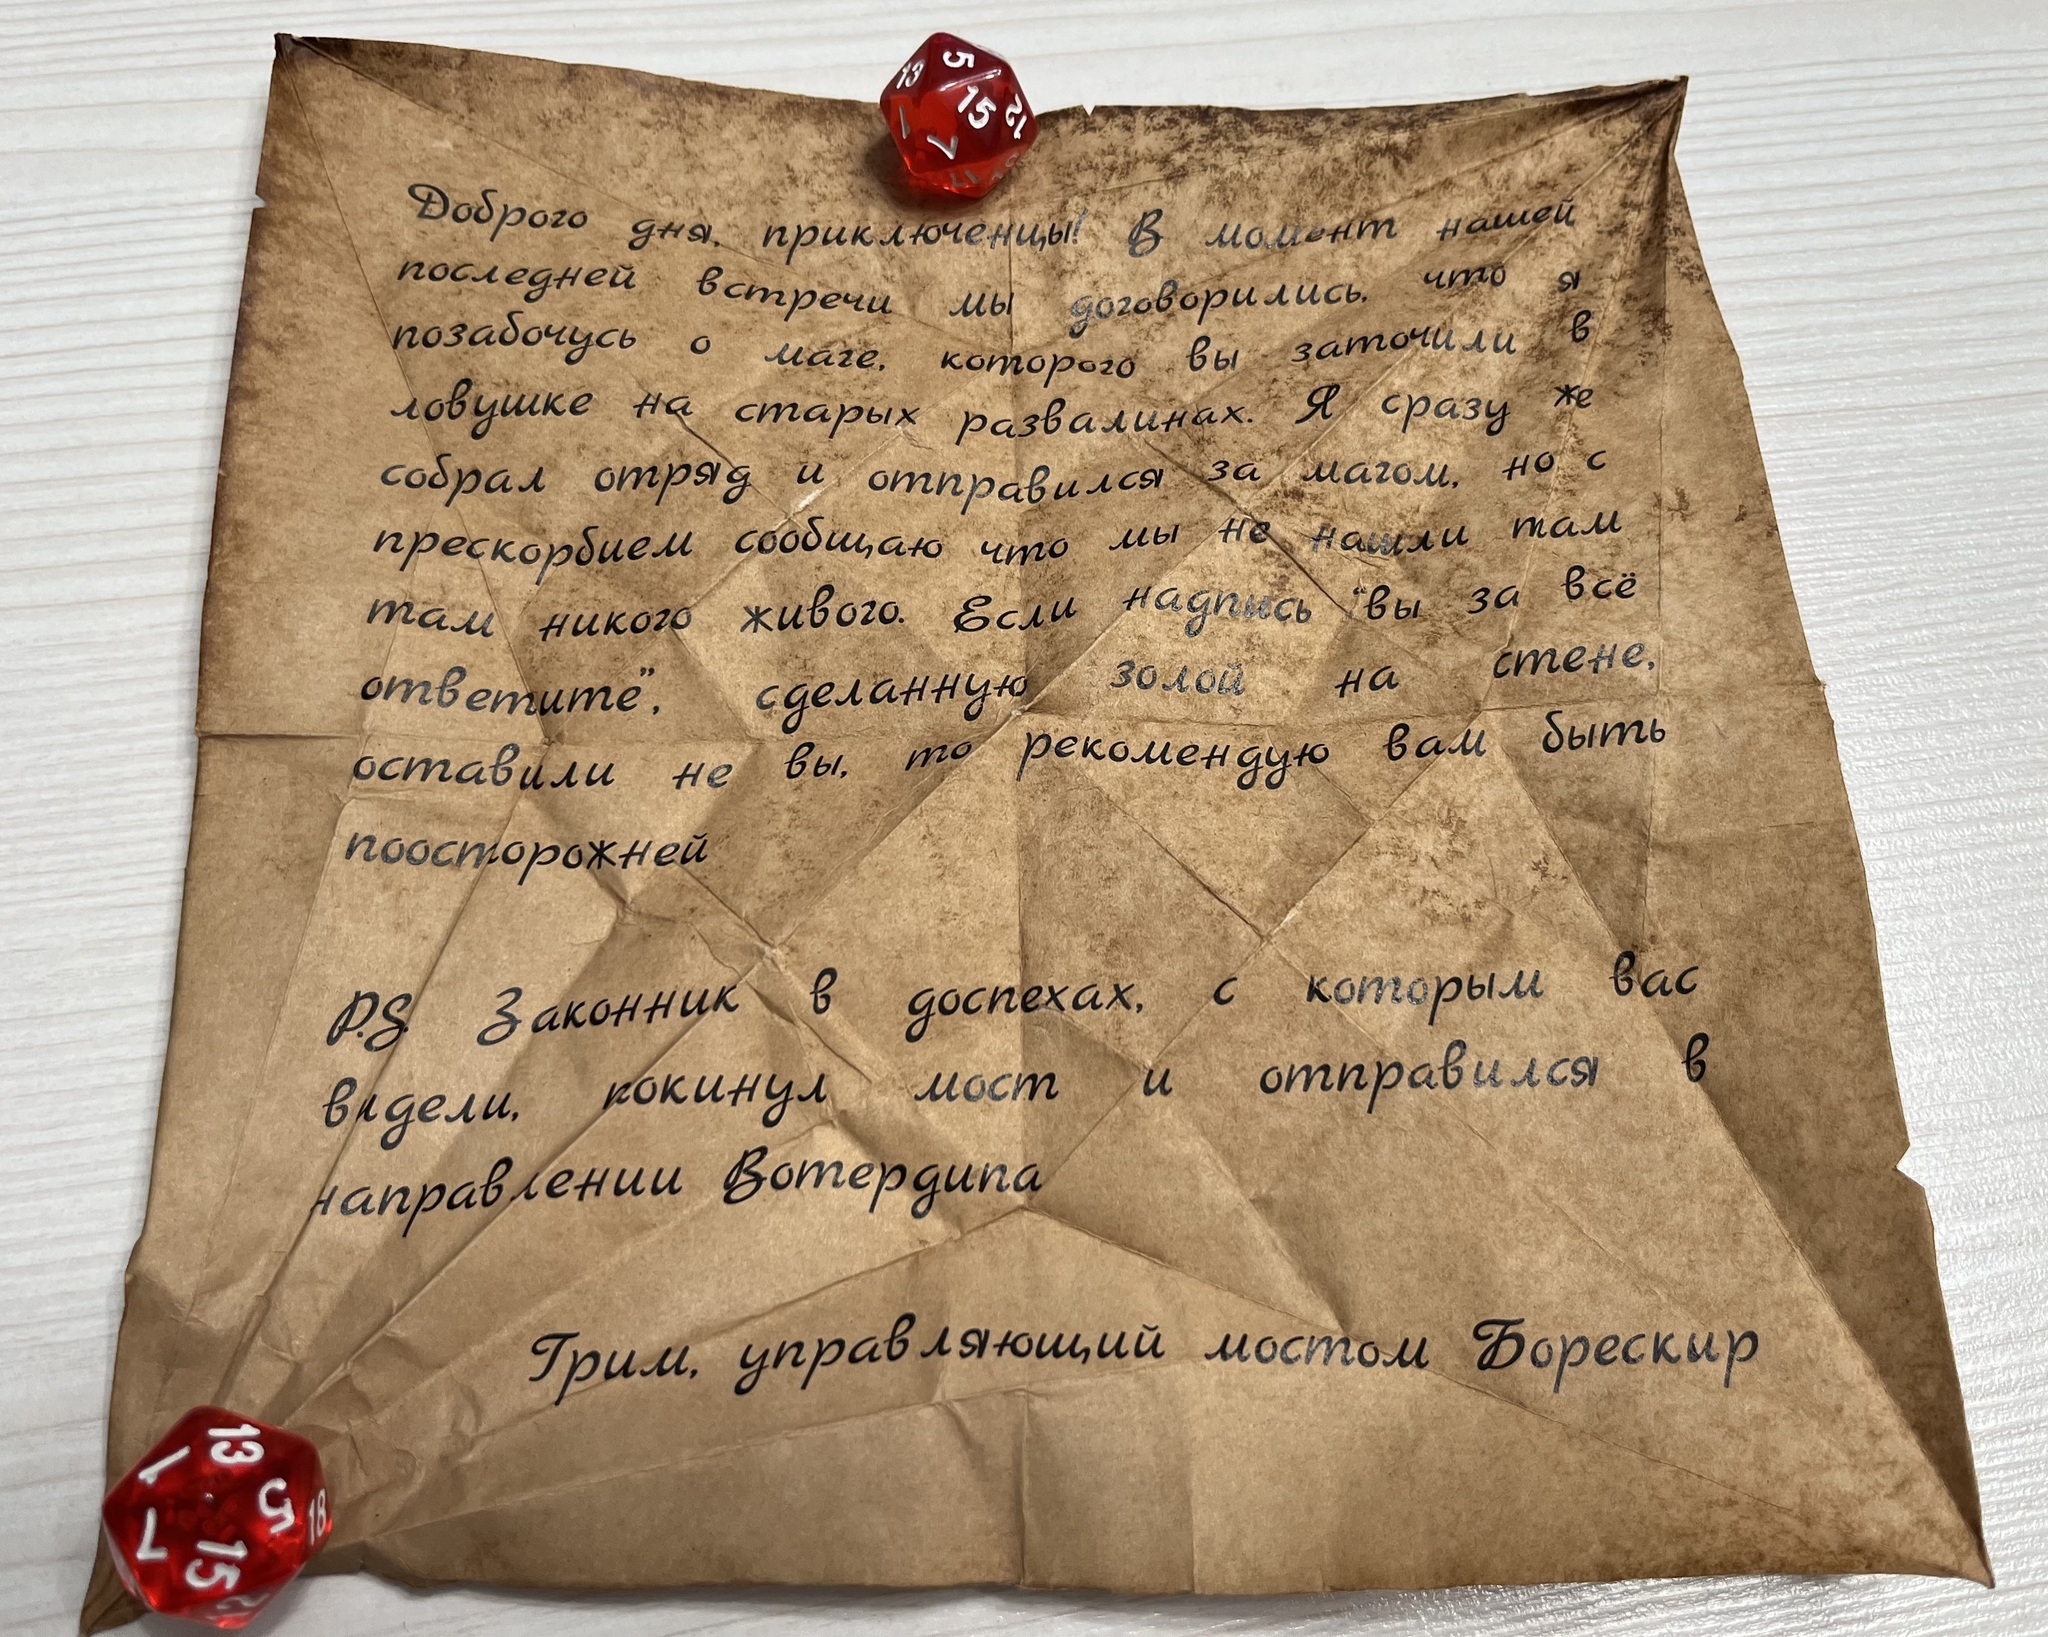 Доброго дня, приключенцы! В момент нашей
последней встречи мы договорились, что я
позабочусь о маге, которого вы заточили в
ловушке на старых развалинах. Я сразу же
собрал отряд и отправился за магом, но с
прескорбием сообщаю что мы не нашли там
там никого живого. Если надпись "вы за всё
ответите", сделанную золой на стене,
оставили не вы, то рекомендую вам быть
поосторожней
P.S. Законник в доспехах, с которым вас
видели, покинул мост и отправился в
направлении Вотердипа
Грим, управляющий мостом Борескир
13
5
15
12
1
7
17
13
1
5
18
7
15